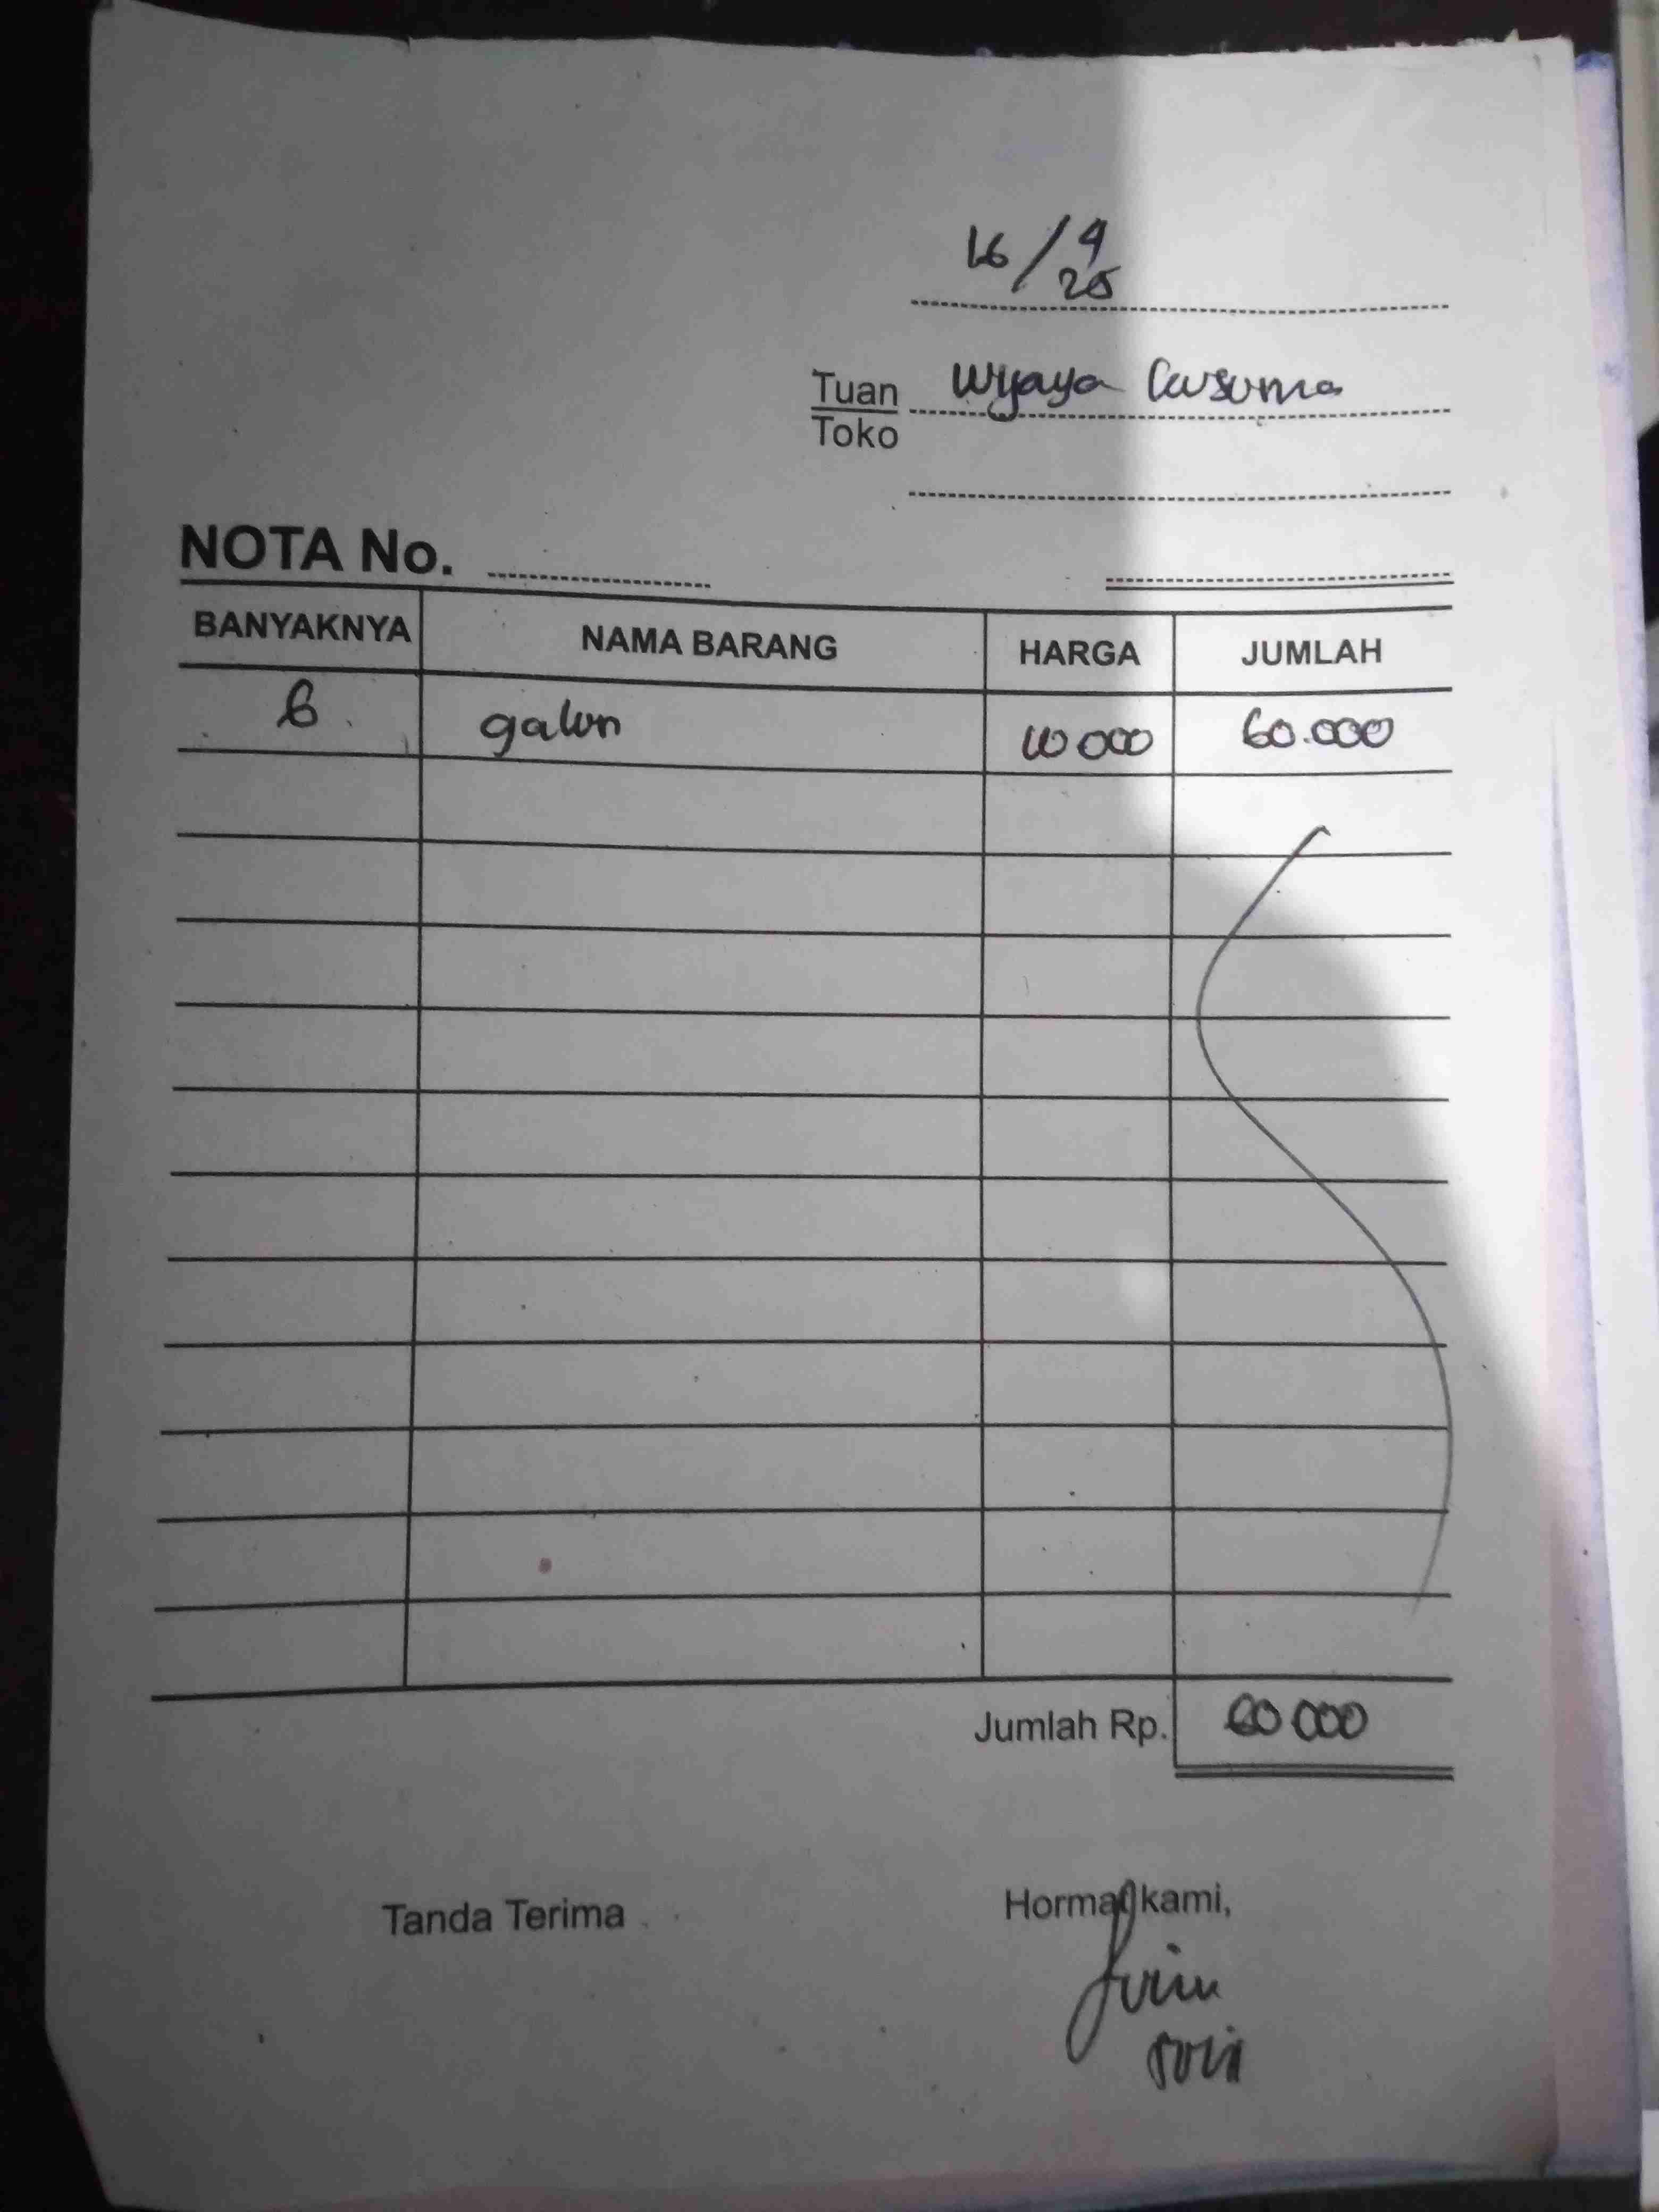 16/9
25
Tuan Wijaya Cusuma
Toko
NOTA No.
BANYAKNYA NAMA BARANG HARGA JUMLAH
6 galon 10 000 60.000
Jumlah Rp. 60 000
Tanda Terima Hormat kami,